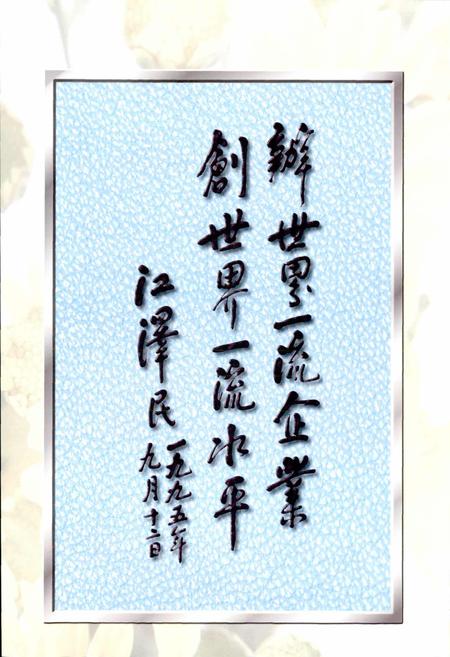 辦世界一流企業
創世界一流水平
江澤民
一九九五年
九月十二日